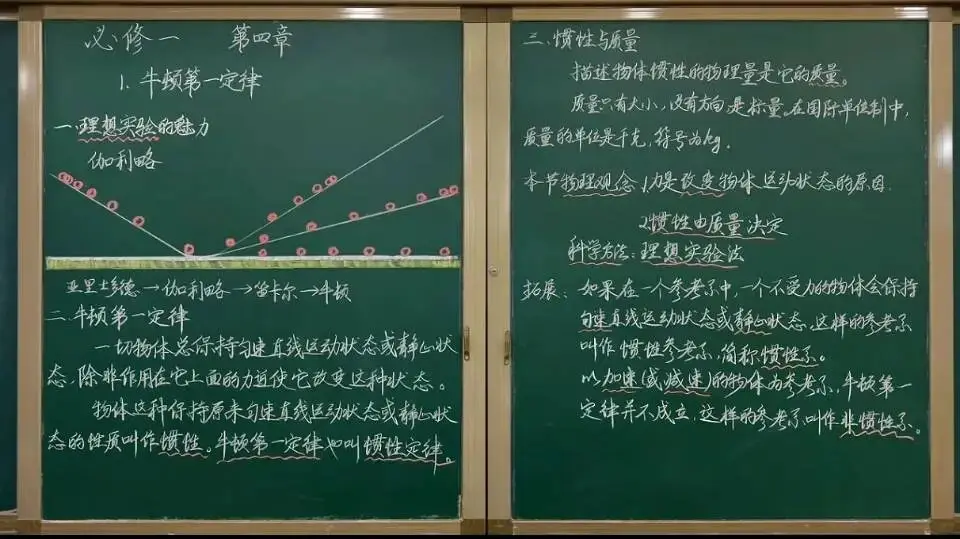 必修一 第四章
1. 牛顿第一定律
一.理想实验的魅力
伽利略
亚里士多德→伽利略→笛卡尔→牛顿
二.牛顿第一定律
一切物体总保持匀速直线运动状态或静止状
态,除非作用在它上面的力迫使它改变这种状态。
物体这种保持原来匀速直线运动状态或静止状
态的性质叫作惯性。牛顿第一定律也叫惯性定律。
三.惯性与质量
描述物体惯性的物理量是它的质量。
质量只有大小,没有方向,是标量。在国际单位制中,
质量的单位是千克,符号为kg。
本节物理观念:1.力是改变物体运动状态的原因.
2.惯性由质量决定
科学方法:理想实验法
拓展:如果在一个参考系中,一个不受力的物体会保持
匀速直线运动状态或静止状态,这样的参考系
叫作惯性参考系,简称惯性系。
以加速(或减速)的物体为参考系,牛顿第一
定律并不成立,这样的参考系叫作非惯性系。